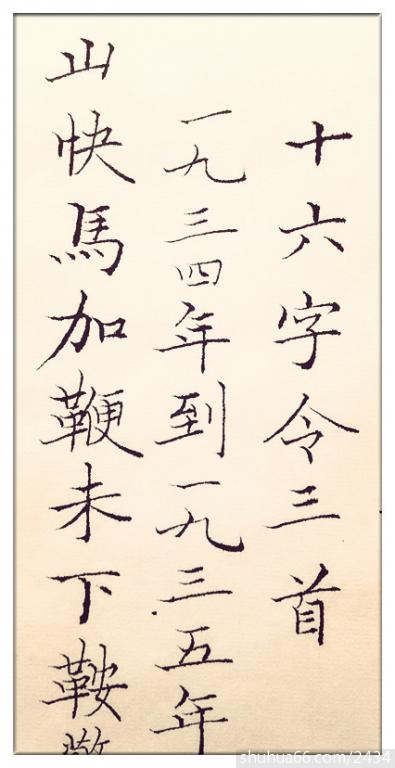 十六字令三首
一九三四年到一九三五年
山快馬加鞭未下鞍
shuhua66.com/2434